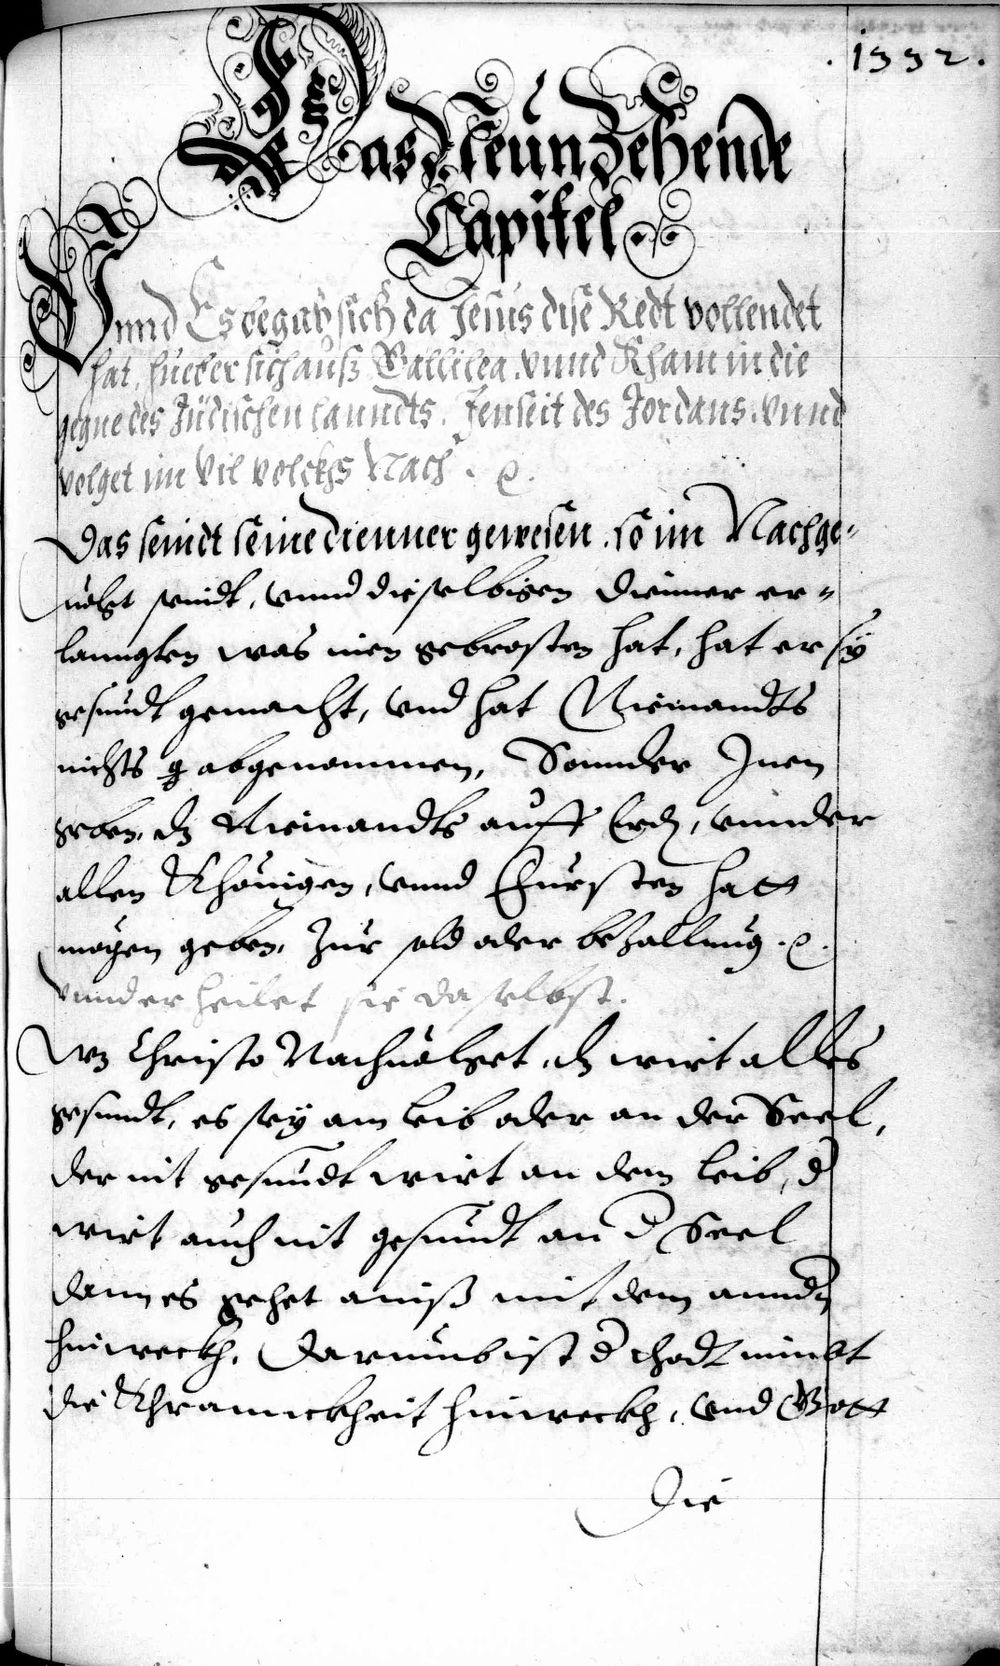 .1332.
Das Neünzehende
Capitel
Vnnd Es begab sich da Jesus dise Redt vollendet
hat, hueb er sich auß Gallilea. vnnd Kham in die
gegne des Jüdischen lanndts. Jenseit des Jordans. vnnd
volget im vil volckhs Nach.
Das seindt seine dienner gewesen. so im Nachge-
uolgt seindt, vnnd dieselbigen dienner er-
lanngten was inen gebrosten hat, hat er sy
gesundt gemacht, vnd hat Niemandts
nichts abgenommen, Sonnder Inen
geben, dz Niemandts auff Erd, vnnder
allen Khönigen, vnnd Fürsten hatt
mögen geben, zur sold oder bezallung.
Vnnd er heilet sie daselbst.
Wer Christo Nachuolget, der wirt alles
gesundt, es sey am leib oder an der Seel,
der nit gesundt wirt an dem leib, d
wirt auch nit gesundt an d Seel
dann es gehet ainß mit dem annd
hinweckh, Darumb ist d thodt nimbt
die Khranckheit hinweckh, vnd Gott
Die